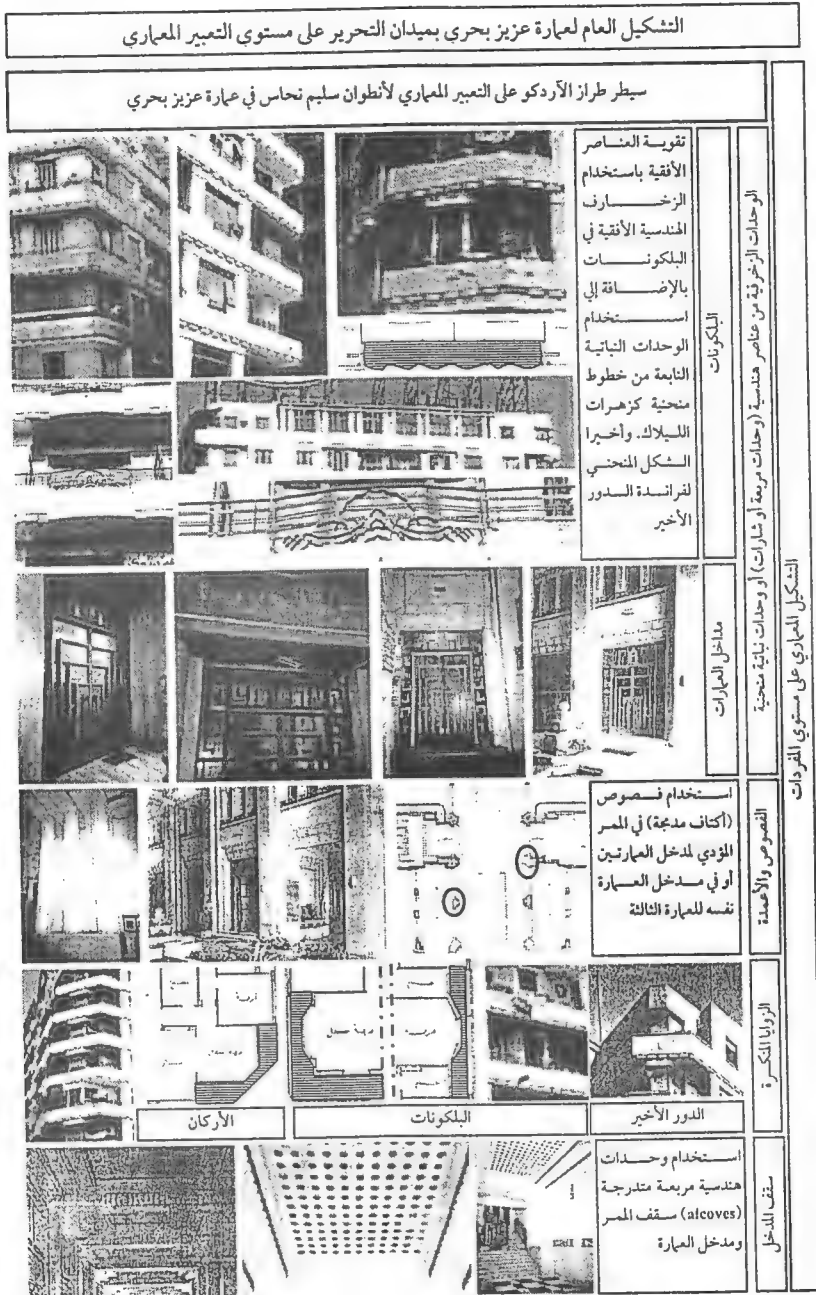 التشكيل العام لعمارة عزيز بحري بميدان التحرير على مستوى التعبير المعماري
سيطر طراز الآردكو على التعبير المعماري لأنطوان سليم نحاس في عمارة عزيز بحري
التشكيل المعماري على مستوي المفردات
الوحدات الزخرفية من عناصر هندسية (وحدات مربعة أو شارات) أو وحدات نباتية منحنية
البلكونات
تقويـــة العنـــاصر
الأفقية باستخدام
الزخـــــارف
الهندسية الأفقية في
البلكونـــــات
بالإضـافة إلي
اســـــتخدام
الوحدات النباتية
النابعة من خطوط
منحنية كزهـرات
الليلاك. وأخـيرا
الشـكل المنحنـي
لفرانـدة الـدور
الأخير
مداخل العمارات
الفصوص والأعمدة
اســتخدام فــصوص
(أكتاف مدمجة) في الممر
المؤدي لمدخل العمارتـين
أو في مـدخل العـــمارة
نفسه للعمارة الثالثة
الزوايا المنكـــرة
الدور الأخير
البلكونات
الأركان
سقف المدخل
اســـتخدام وحـــدات
هندسية مربعـة متدرجـة
(afcoves) سـقف الممر
ومدخل العمارة